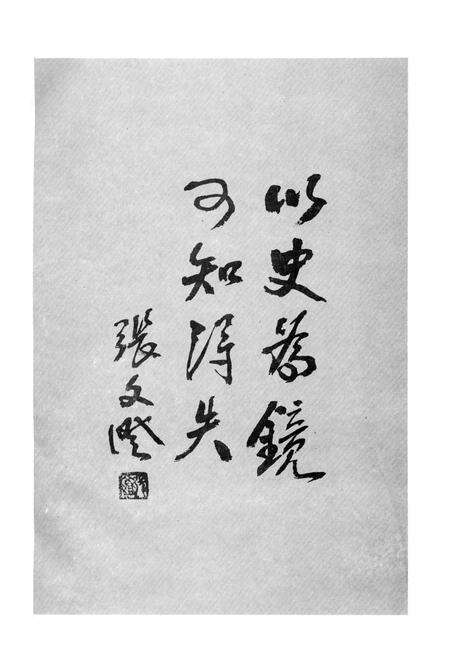 以史為鏡
可知得失
張文澄